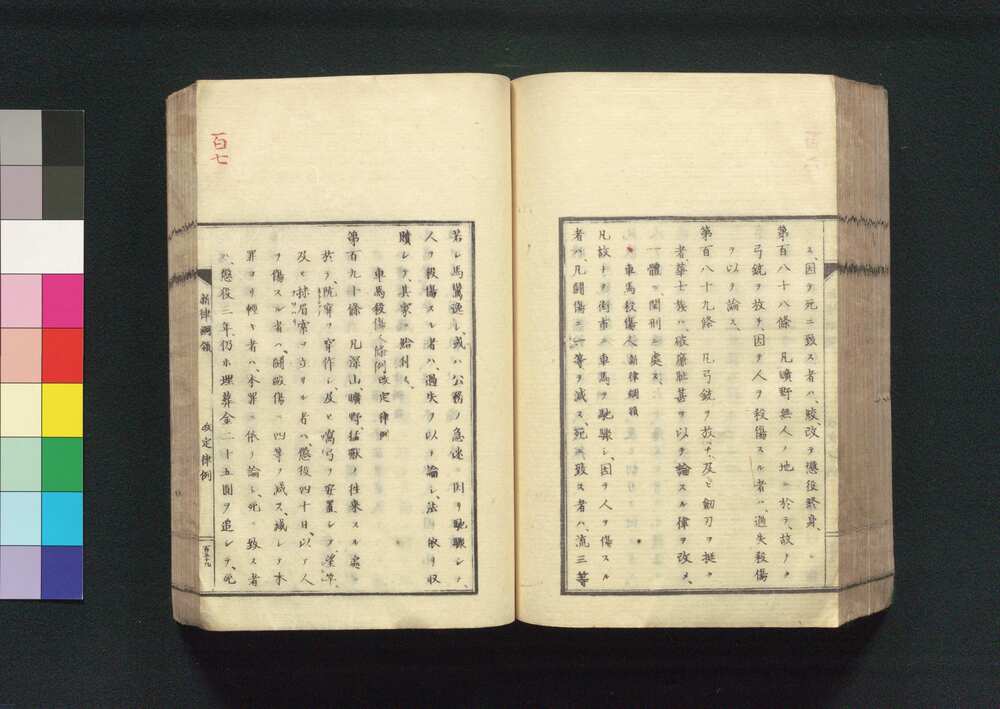 ス、因テ死ニ致ス者ハ、絞、改テ懲役終身、
第百八十八條　凡曠野無人ノ地ニ於テ、故ナク
弓銃ヲ放チ、因テ人ヲ殺傷スル者ハ、過失殺傷
ヲ以テ論ス、
第百八十九條　凡弓銃ヲ放チ、及ヒ劔刃ヲ挺ス
者、華士族ハ、破廉耻甚ヲ以テ論スル律ヲ改メ、
一體ニ、閏刑ニ處ス、
車馬殺傷人 新律綱領
凡故ナク街市ニ車馬ヲ馳驟シ、因テ人ヲ傷スル
者ハ、凡鬪傷ニ一等ヲ減ス、死ニ致ス者ハ、流三等
若シ馬驚逸シ、或ハ公務ノ急速ニ因リ馳驟シテ、
人ヲ殺傷スル者ハ、過失ヲ以テ論シ、法ニ依リ収
贖シテ、其家ニ給付ス、
車馬殺傷人條例 改定律例
第百九十條　凡深山曠野、猛獸ノ往來スル處ニ
於テ、阬穽ヲ穿作シ、及ヒ窩弓ヲ安置シテ、望竿
及ヒ抹眉索ヲ立サル者ハ、懲役四十日、以テ人
ヲ傷スル者ハ、鬪毆傷ニ四等ヲ減ス、減シテ本
罪ヨリ輕キ者ハ、本罪ニ依テ論シ、死ニ致ス者
ハ、懲役三年、仍ホ埋葬金二十五圓ヲ追シテ、死
新律綱領　改定律例
百五十九
百七